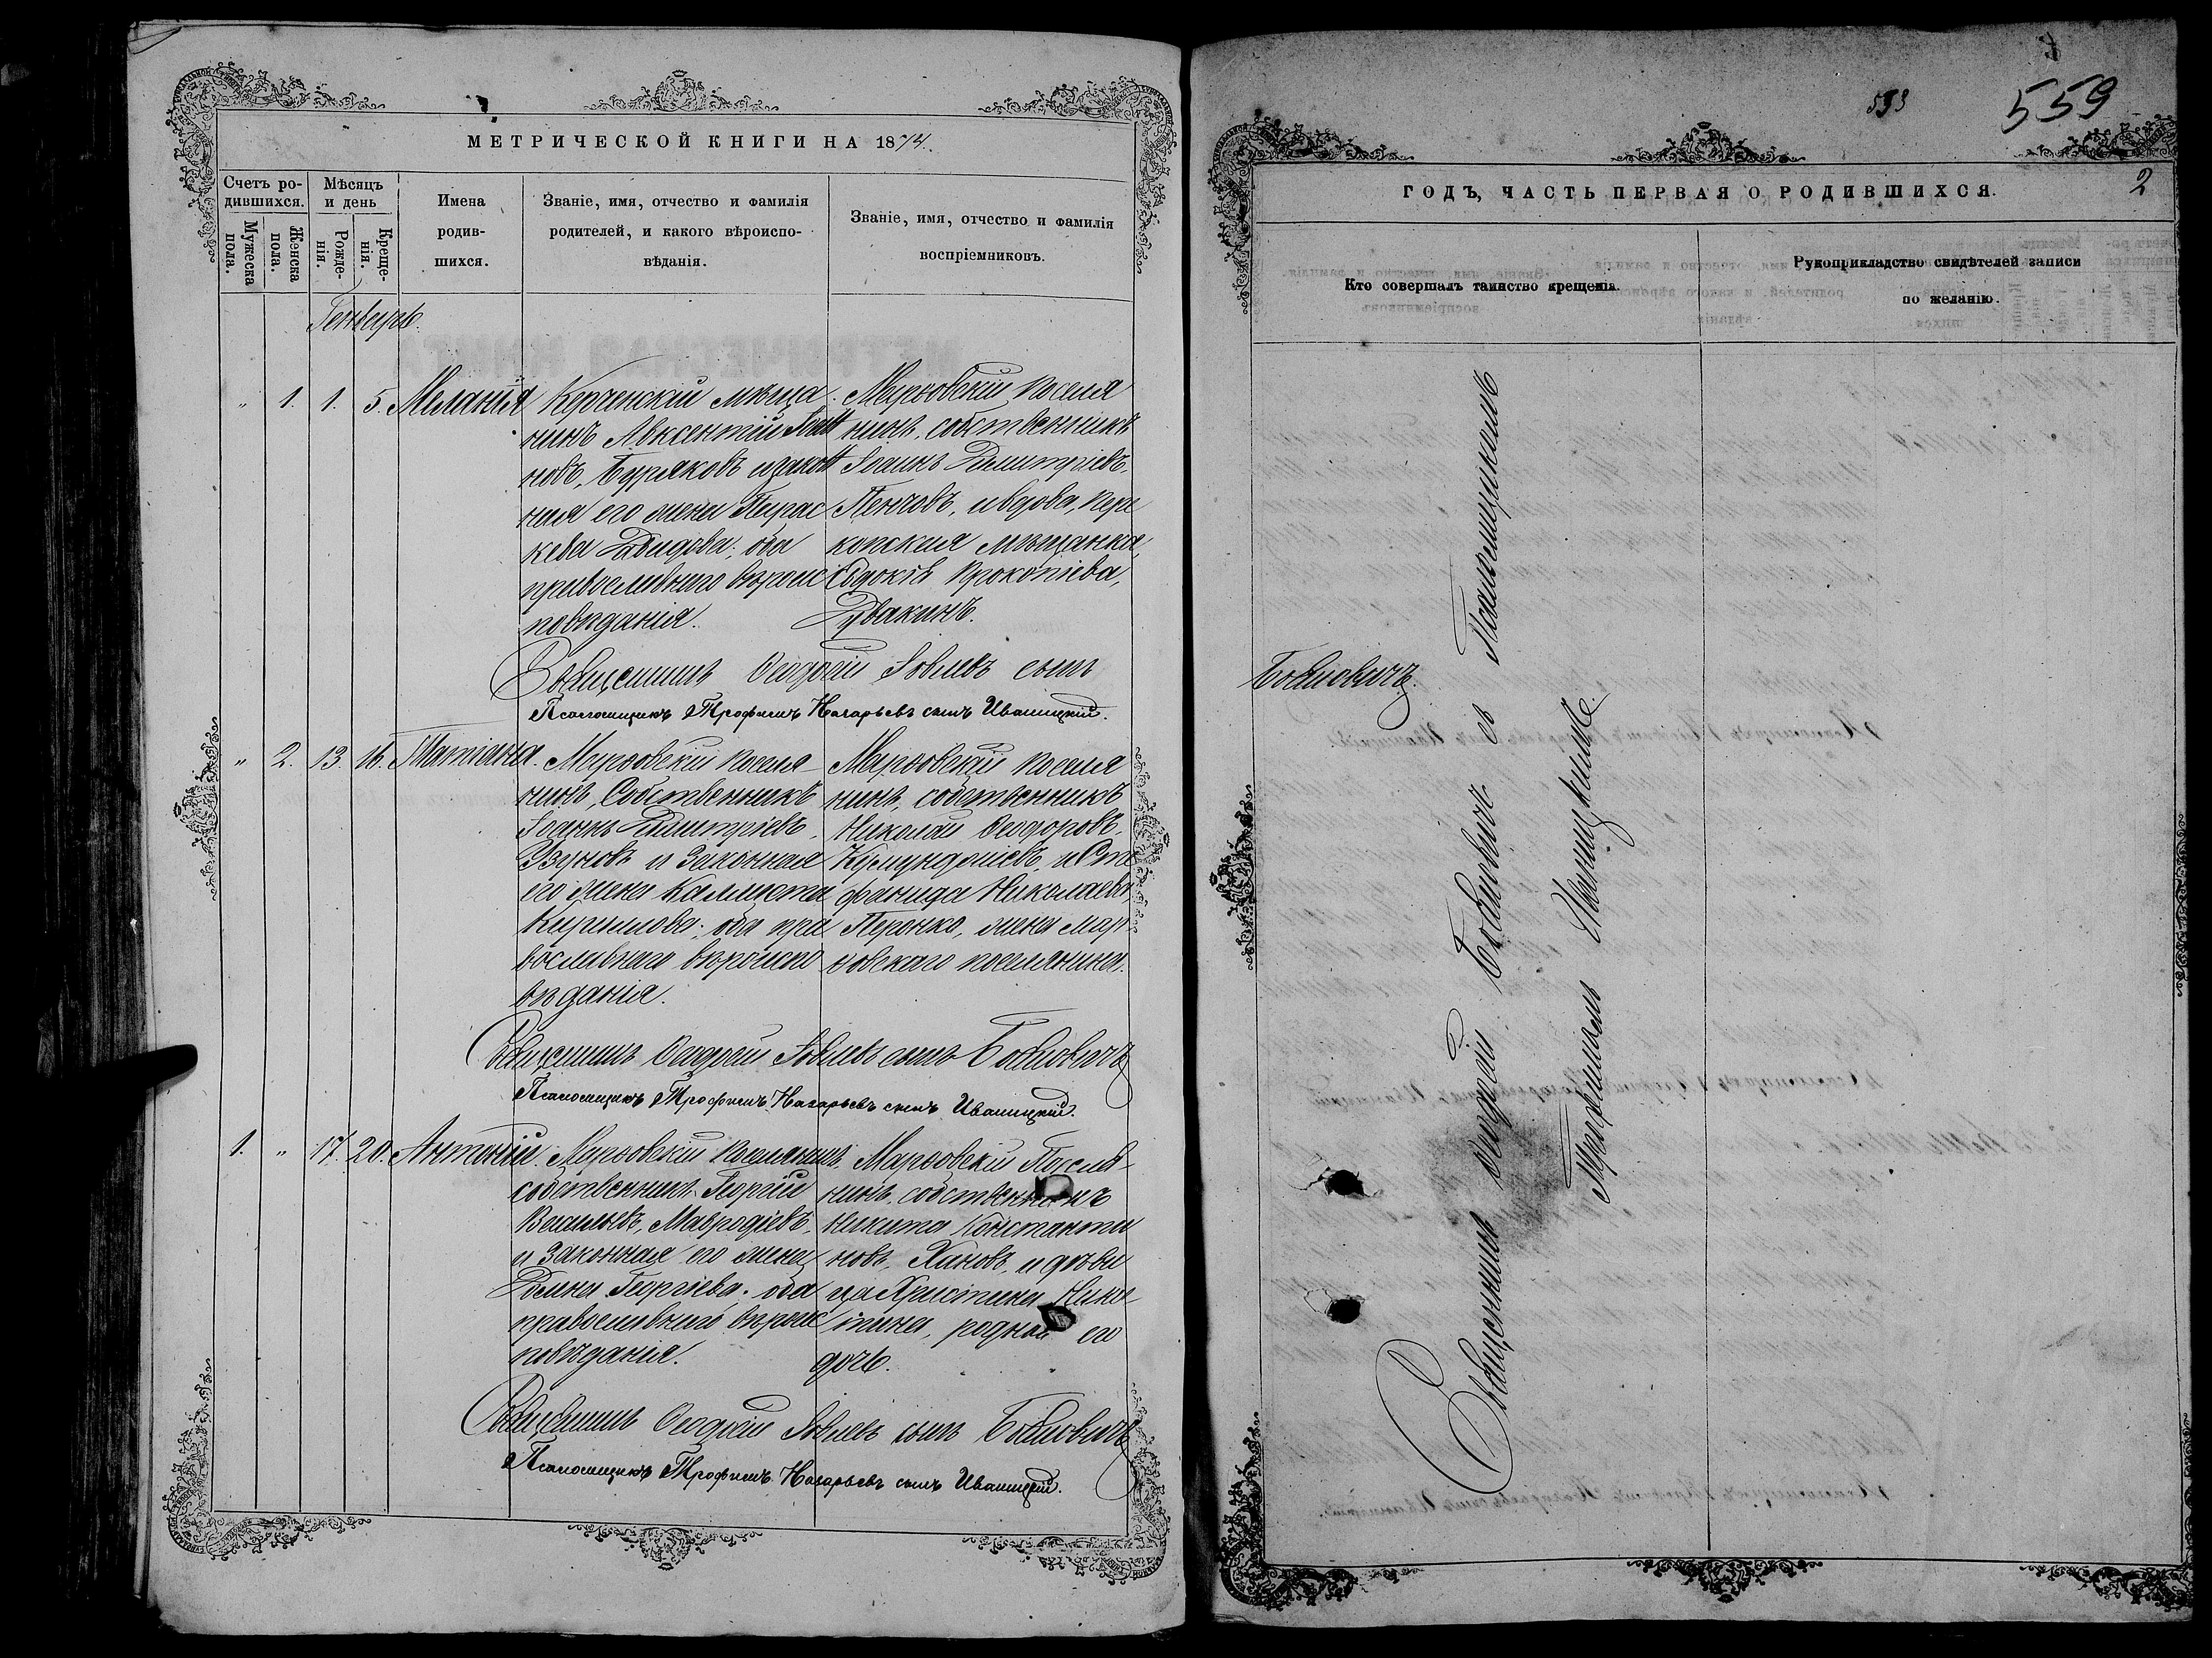 МЕТРИЧЕСКОЙ КНИГИ НА 1874.
Счетъ ро-
дившихся.
Мужеска
пола.
Женска
пола.
Мѣсяцъ
и день
Рожде-
нія.
Креще-
нія.
Имена
родив-
шихся.
Званіе, имя, отчество и фамилія
родителей, и какого вѣроиспо-
вѣданія.
Званіе, имя, отчество и фамилія
воспріемниковъ.
Генварь.
" 1. 1. 5. Меланія
Керченскій мѣща
нинъ Авксентій
новъ, Буряковъ и закон
ная его жена Парас
кева Давидова; оба
православнаго вѣроис
повѣданія.
Марѳовскій поселя
нинъ, собственникъ
Іоаннъ Димитріевъ,
Пенчовъ, и вдова, пере
копская мѣщанка,
Евдокія Прокопіева,
Священникъ Ѳеодосій Іовлевъ сынъ
Псаломщикъ Трофимъ Назарьевъ сынъ Иваницкій.
" 2. 13. 16. Татіана.
Марѳовскій поселя-
нинъ, Собственникъ
Іоаннъ Димитріевъ,
Узуновъ и Законная
его жена
Кирилова; оба пра
вославнаго вѣроиспо
вѣданія.
Марѳовскій поселя
нинъ, собственникъ
Николай Ѳеодоровъ,
и Сте
фанида Николаева,
Перонко, жена Мар-
ѳовскаго поселянина.
Священникъ Ѳеодосій Іовлевъ сынъ
Псаломщикъ Трофимъ Назарьевъ сынъ Иваницкій.
1. " 17. 20. Антоній.
Марѳовскій поселянинъ
собственникъ Георгій
Васильевъ, Мавродіевъ,
и Законная его жена
Домна Георгіева; оба
православнаго вѣроис
повѣданія.
Марѳовскій Поселя-
нинъ, собственникъ
Никита Константи
новъ, Хановъ, и дѣви
ца Христина Ники-
тина, родная его
дочь.
Священникъ Ѳеодосій Іовлевъ сынъ
Псаломщикъ Трофимъ Назарьевъ сынъ Иваницкій.
559
2
ГОДЪ, ЧАСТЬ ПЕРВАЯ О РОДИВШИХСЯ.
Кто совершалъ таинство крещенія.
Рукоприкладство свидѣтелей записи
по желанію.
Священникъ Ѳеодосій съ Псаломщикомъ
Трофимомъ Иваницкимъ.